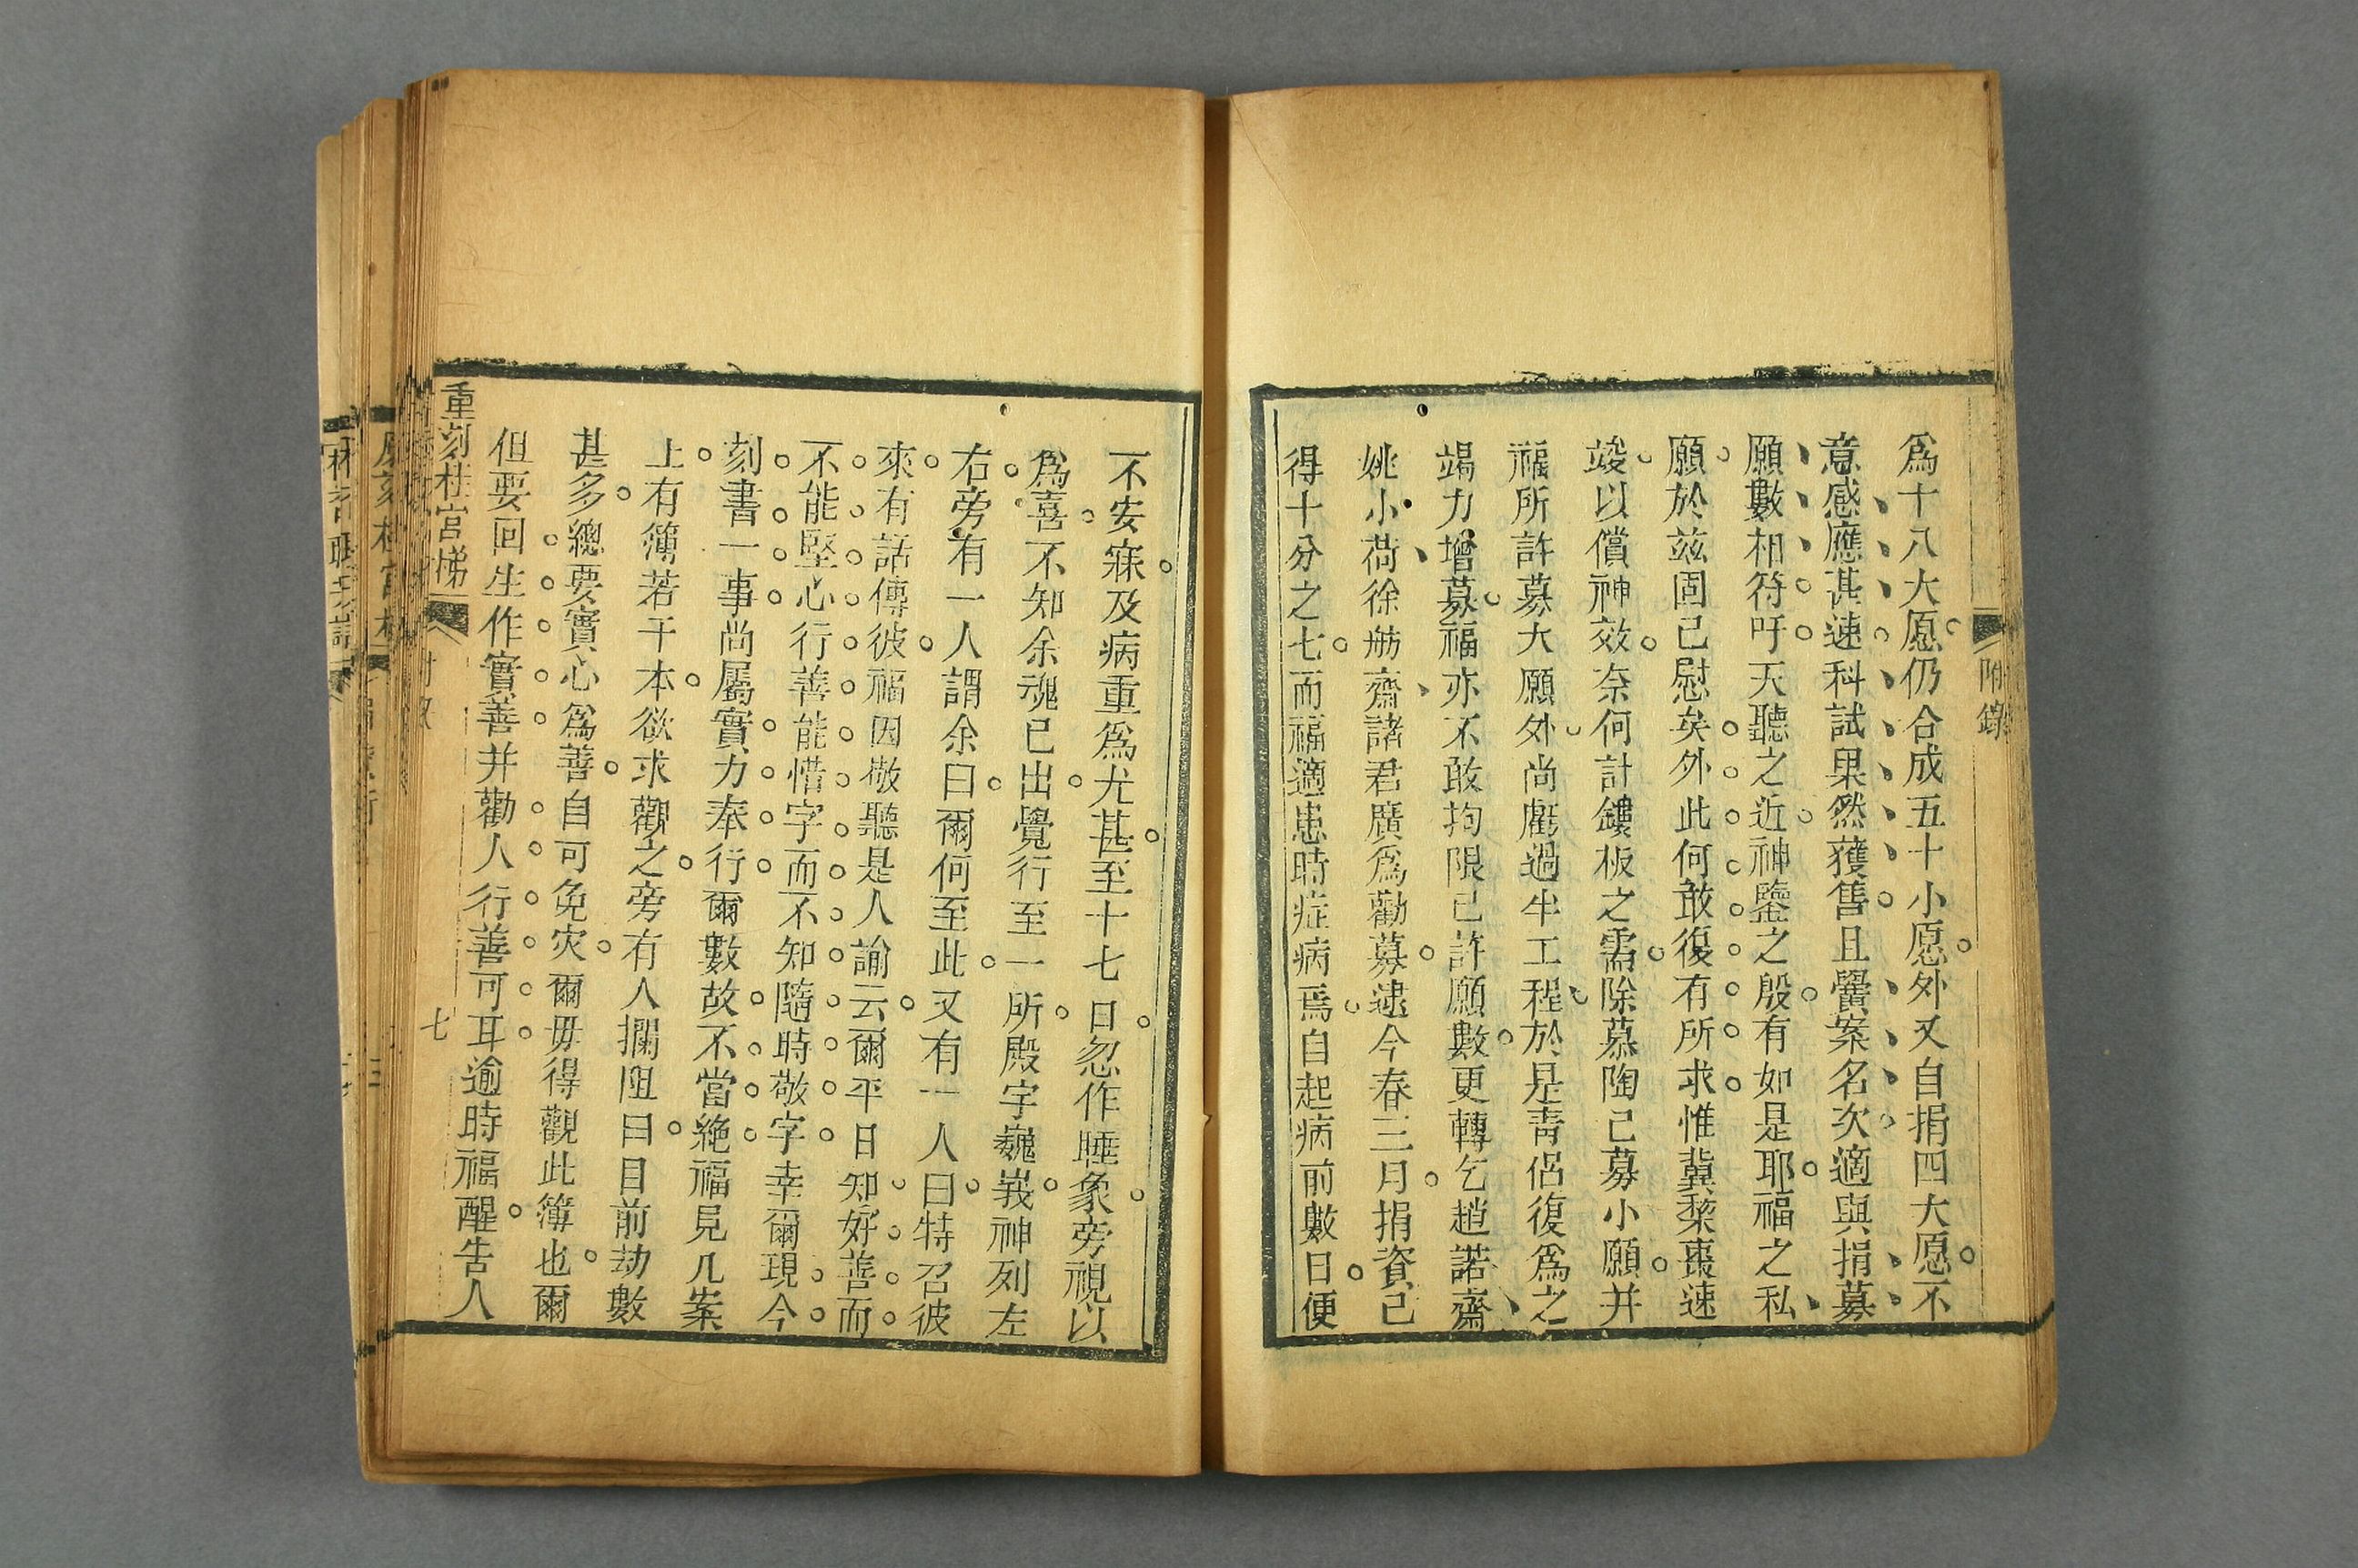 附錄
爲十八大愿仍合成五十小愿外又自捐四大愿不
意感應甚速科試果然獲售且黌案名次適與捐募
願數相符吁天聽之近神鑒之殷有如是耶福之私
願於兹固已慰矣外此何敢復有所求惟冀棃棗速
竣以償神效奈何計鏤板之需除慕陶已募小願并
福所許募大願外尚虧過半工程於是靑侶復爲之
竭力增募福亦不敢拘限已許願數更轉乞趙諾齋
姚小荷徐舫齋諸君廣爲勸募逮今春三月捐資已
得十分之七而福適患時症病焉自起病前數日便
不安寐及病重爲尤甚至十七日忽作睡象旁視以
爲喜不知余魂已出覺行至一所殿宇巍峩神列左
右旁有一人謂余曰爾何至此又有一人曰特召彼
來有話傳彼福因敬聽是人諭云爾平日知好善而
不能堅心行善能惜字而不知隨時敬字幸爾現今
刻書一事尚屬實力奉行爾數故不當絶福見几案
上有簿若干本欲求觀之旁有人攔阻曰目前劫數
甚多總要實心爲善自可免灾爾毋得觀此簿也爾
但要回生作實善并勸人行善可耳逾時福醒告人
重刻桂宮梯
七